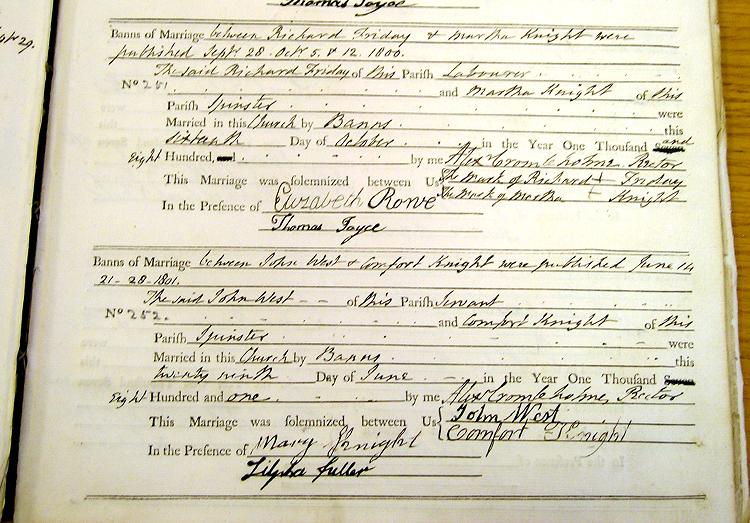 Thomas Jayce
Banns of Marriage between Richard Friday & Martha Knight were
published Septr 28. Octr 5. & 12. 1800.
The said Richard Friday of this Parish Labourer
No 251 and Martha Knight of this
Parish Spinster were
Married in this Church by Banns this
sixteenth Day of October in the Year One Thousand and
Eight Hundred, by me Alexr Crombeholme, Rector
This Marriage was solemnized between Us The Mark of Richard + Friday
The Mark of Martha + Knight
In the Presence of Elizabeth Rowe
Thomas Jayce
Banns of Marriage between John West & Comfort Knight were published June 14
21 - 28 - 1801.
The said John West of this Parish Servant
No 252. and Comfort Knight of this
Parish Spinster were
Married in this Church by Banns this
twenty ninth Day of June in the Year One Thousand
Eight Hundred and one by me Alexr Crombeholme, Rector
This Marriage was solemnized between Us John West
Comfort Knight
In the Presence of Mary Knight
Zilpha Fuller